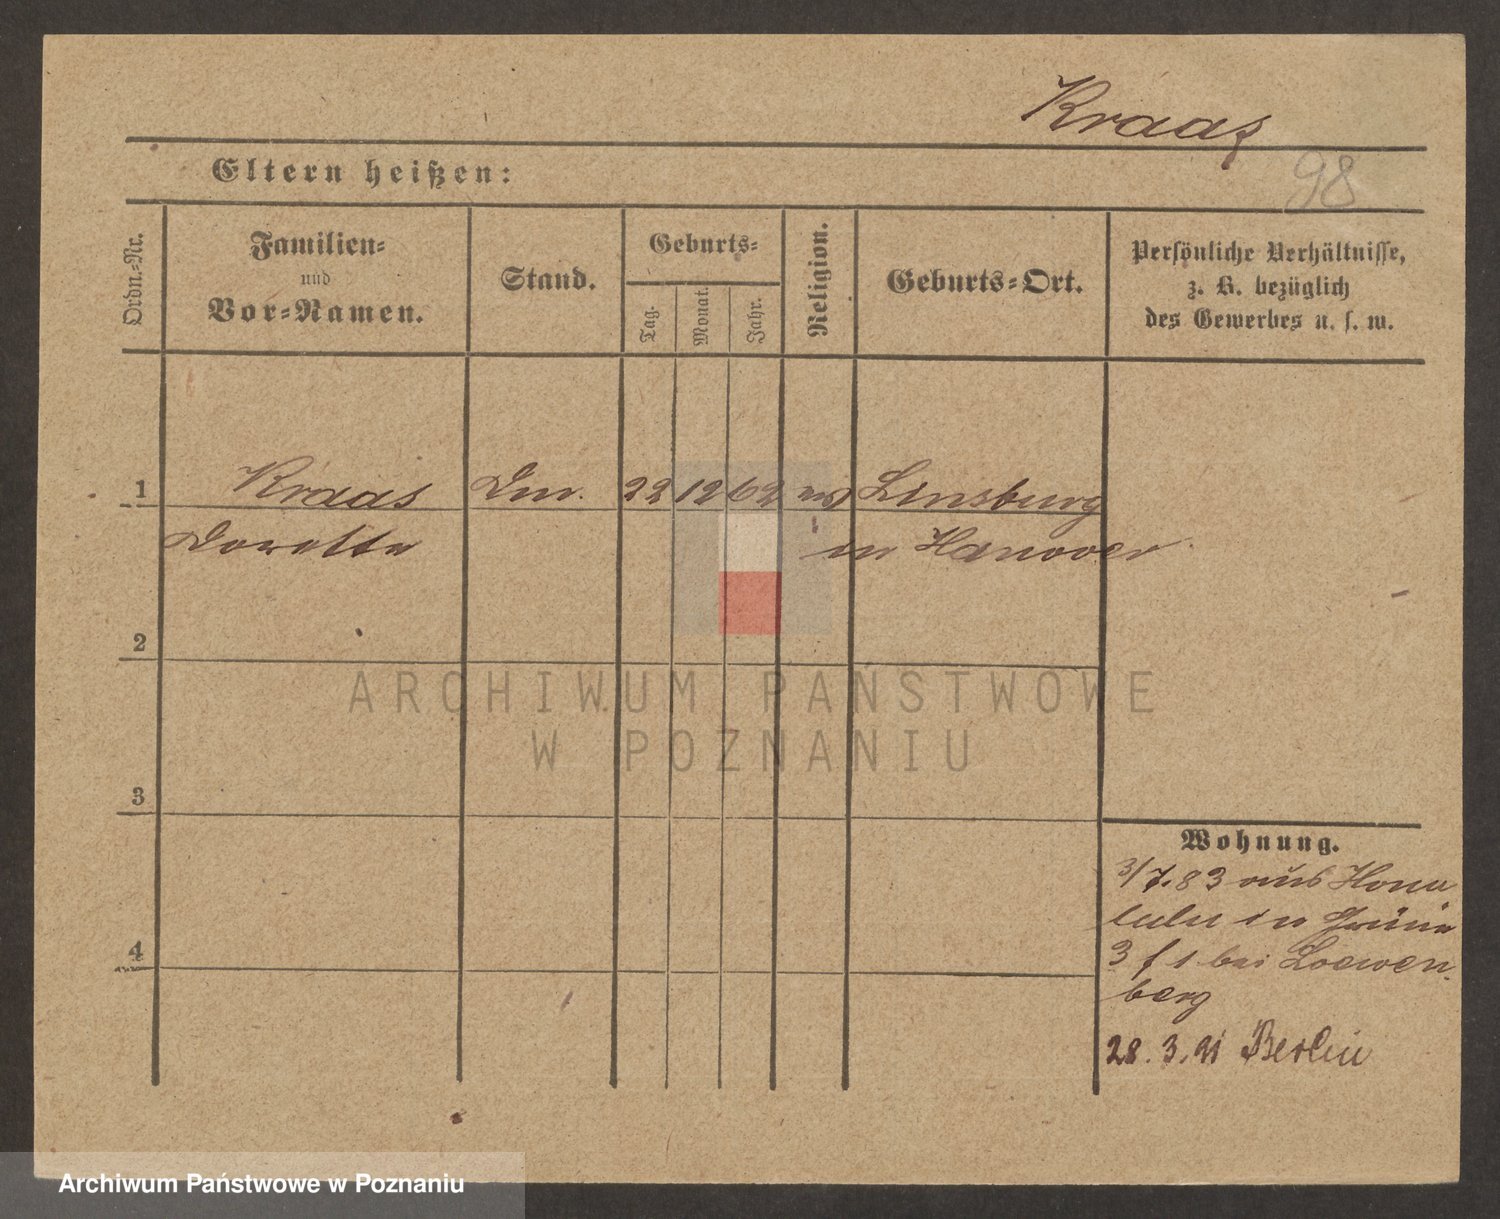 Kraas
98
Eltern heißen:
Ordn.-Nr.
Familien-
und
Vor-Namen.
Stand.
Geburts-
Tag.
Monat.
Jahr.
Religion.
Geburts-Ort.
Persönliche Verhältnisse,
z. B. bezüglich
des Gewerbes u. s. w.
1 Kraas 22 12 62 Linsburg
Dorette in Hanover
2
3
4
Wohnung.
3/7.83 aus Hono
lulu in
3 f 1 bei Loewen
berg
28.3.91 Berlin
ARCHIWUM PAŃSTWOWE
W POZNANIU
Archiwum Państwowe w Poznaniu